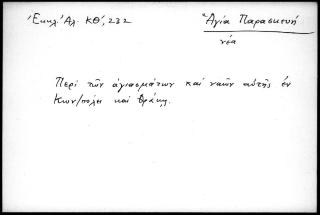 Ἐκκλ. Ἀλ. ΚΘ', 232
Ἁγία Παρασκευή
νέα
Περὶ τῶν ἁγιασμάτων καὶ ναῶν αὐτῆς ἐν
Κων/πόλει καὶ Θράκῃ.